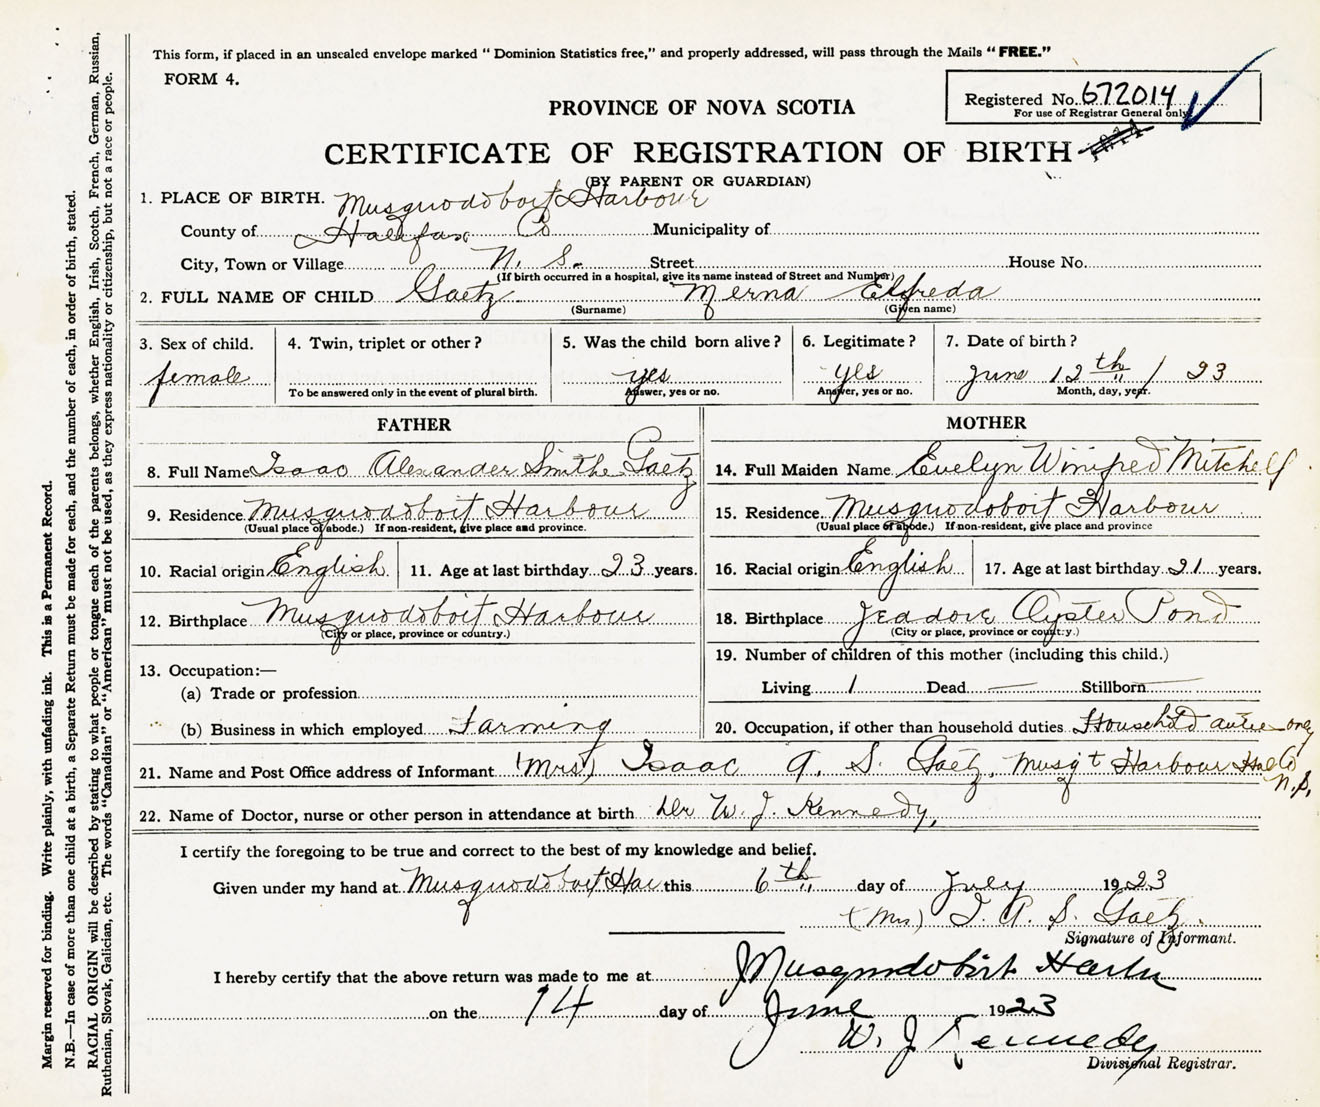 This form, if placed in an unsealed envelope marked "Dominion Statistics free," and properly addressed, will pass through the Mails "FREE."
FORM 4.
Registered No. 672014
For use of Registrar General only
PROVINCE OF NOVA SCOTIA
CERTIFICATE OF REGISTRATION OF BIRTH
(BY PARENT OR GUARDIAN)
1. PLACE OF BIRTH. Musquodoboit Harbour
County of Halifax Co Municipality of
City, Town or Village N. S. Street House No.
(If birth occurred in a hospital, give its name instead of Street and Number)
2. FULL NAME OF CHILD Gaetz Merna Elfreda
(Surname) (Given name)
3. Sex of child. 4. Twin, triplet or other? 5. Was the child born alive? 6. Legitimate? 7. Date of birth?
female yes yes June 12th / 23
To be answered only in the event of plural birth. Answer, yes or no. Answer, yes or no. Month, day, year.
FATHER MOTHER
8. Full Name Isaac Alexander Smithe Gaetz
9. Residence Musquodoboit Harbour
(Usual place of abode.) If non-resident, give place and province.
10. Racial origin English 11. Age at last birthday 23 years.
12. Birthplace Musquodoboit Harbour
(City or place, province or country.)
13. Occupation:—
(a) Trade or profession
(b) Business in which employed Farming
14. Full Maiden Name Evelyn Winifred Mitchell
15. Residence. Musquodoboit Harbour
(Usual place of abode.) If non-resident, give place and province
16. Racial origin English 17. Age at last birthday 21 years.
18. Birthplace Jeadore Oyster Pond
(City or place, province or country.)
19. Number of children of this mother (including this child.)
Living 1 Dead — Stillborn —
20. Occupation, if other than household duties Household duties only
21. Name and Post Office address of Informant (Mrs) Isaac A. S. Gaetz, Musq't Harbour Hal Co
N.S.
22. Name of Doctor, nurse or other person in attendance at birth Dr W. J. Kennedy,
I certify the foregoing to be true and correct to the best of my knowledge and belief.
Given under my hand at Musquodoboit Har this 6th day of July 1923
(Mrs) I. A. S. Gaetz.
Signature of Informant.
I hereby certify that the above return was made to me at Musquodoboit Harbr
on the 14 day of June 1923
W. J Kennedy
Divisional Registrar.
Margin reserved for binding. Write plainly, with unfading ink. This is a Permanent Record.
N.B.—In case of more than one child at a birth, a Separate Return must be made for each, and the number of each, in order of birth, stated.
RACIAL ORIGIN will be described by stating to what people or tongue each of the parents belongs, whether English, Irish, Scotch, French, German, Russian,
Ruthenian, Slovak, Galician, etc. The words "Canadian" or "American" must not be used, as they express nationality or citizenship, but not a race or people.